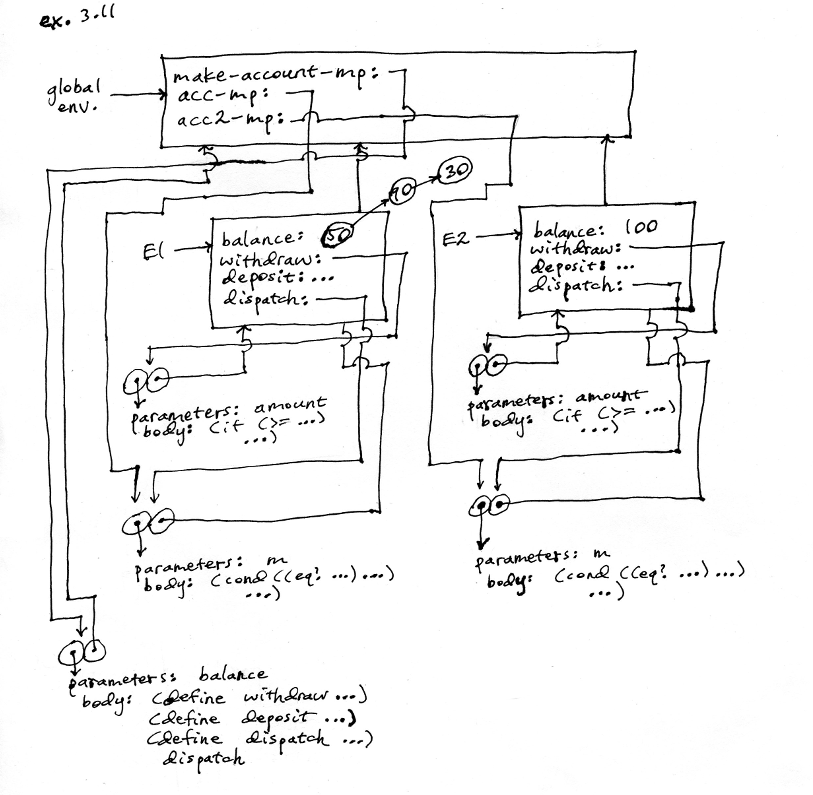 ex. 3.11
global env.
make-account-mp:
acc-mp:
acc2-mp:
50
90
30
E1
balance:
withdraw:
deposit: ...
dispatch:
E2
balance: 100
withdraw:
deposit: ...
dispatch:
parameters: amount
body: (if (>= ...)
...)
parameters: amount
body: (if (>= ...)
...)
parameters: m
body: (cond ((eq? ...) ...)
...)
parameters: m
body: (cond ((eq? ...) ...)
...)
parameters: balance
body: (define withdraw ...)
(define deposit ...)
(define dispatch ...)
dispatch